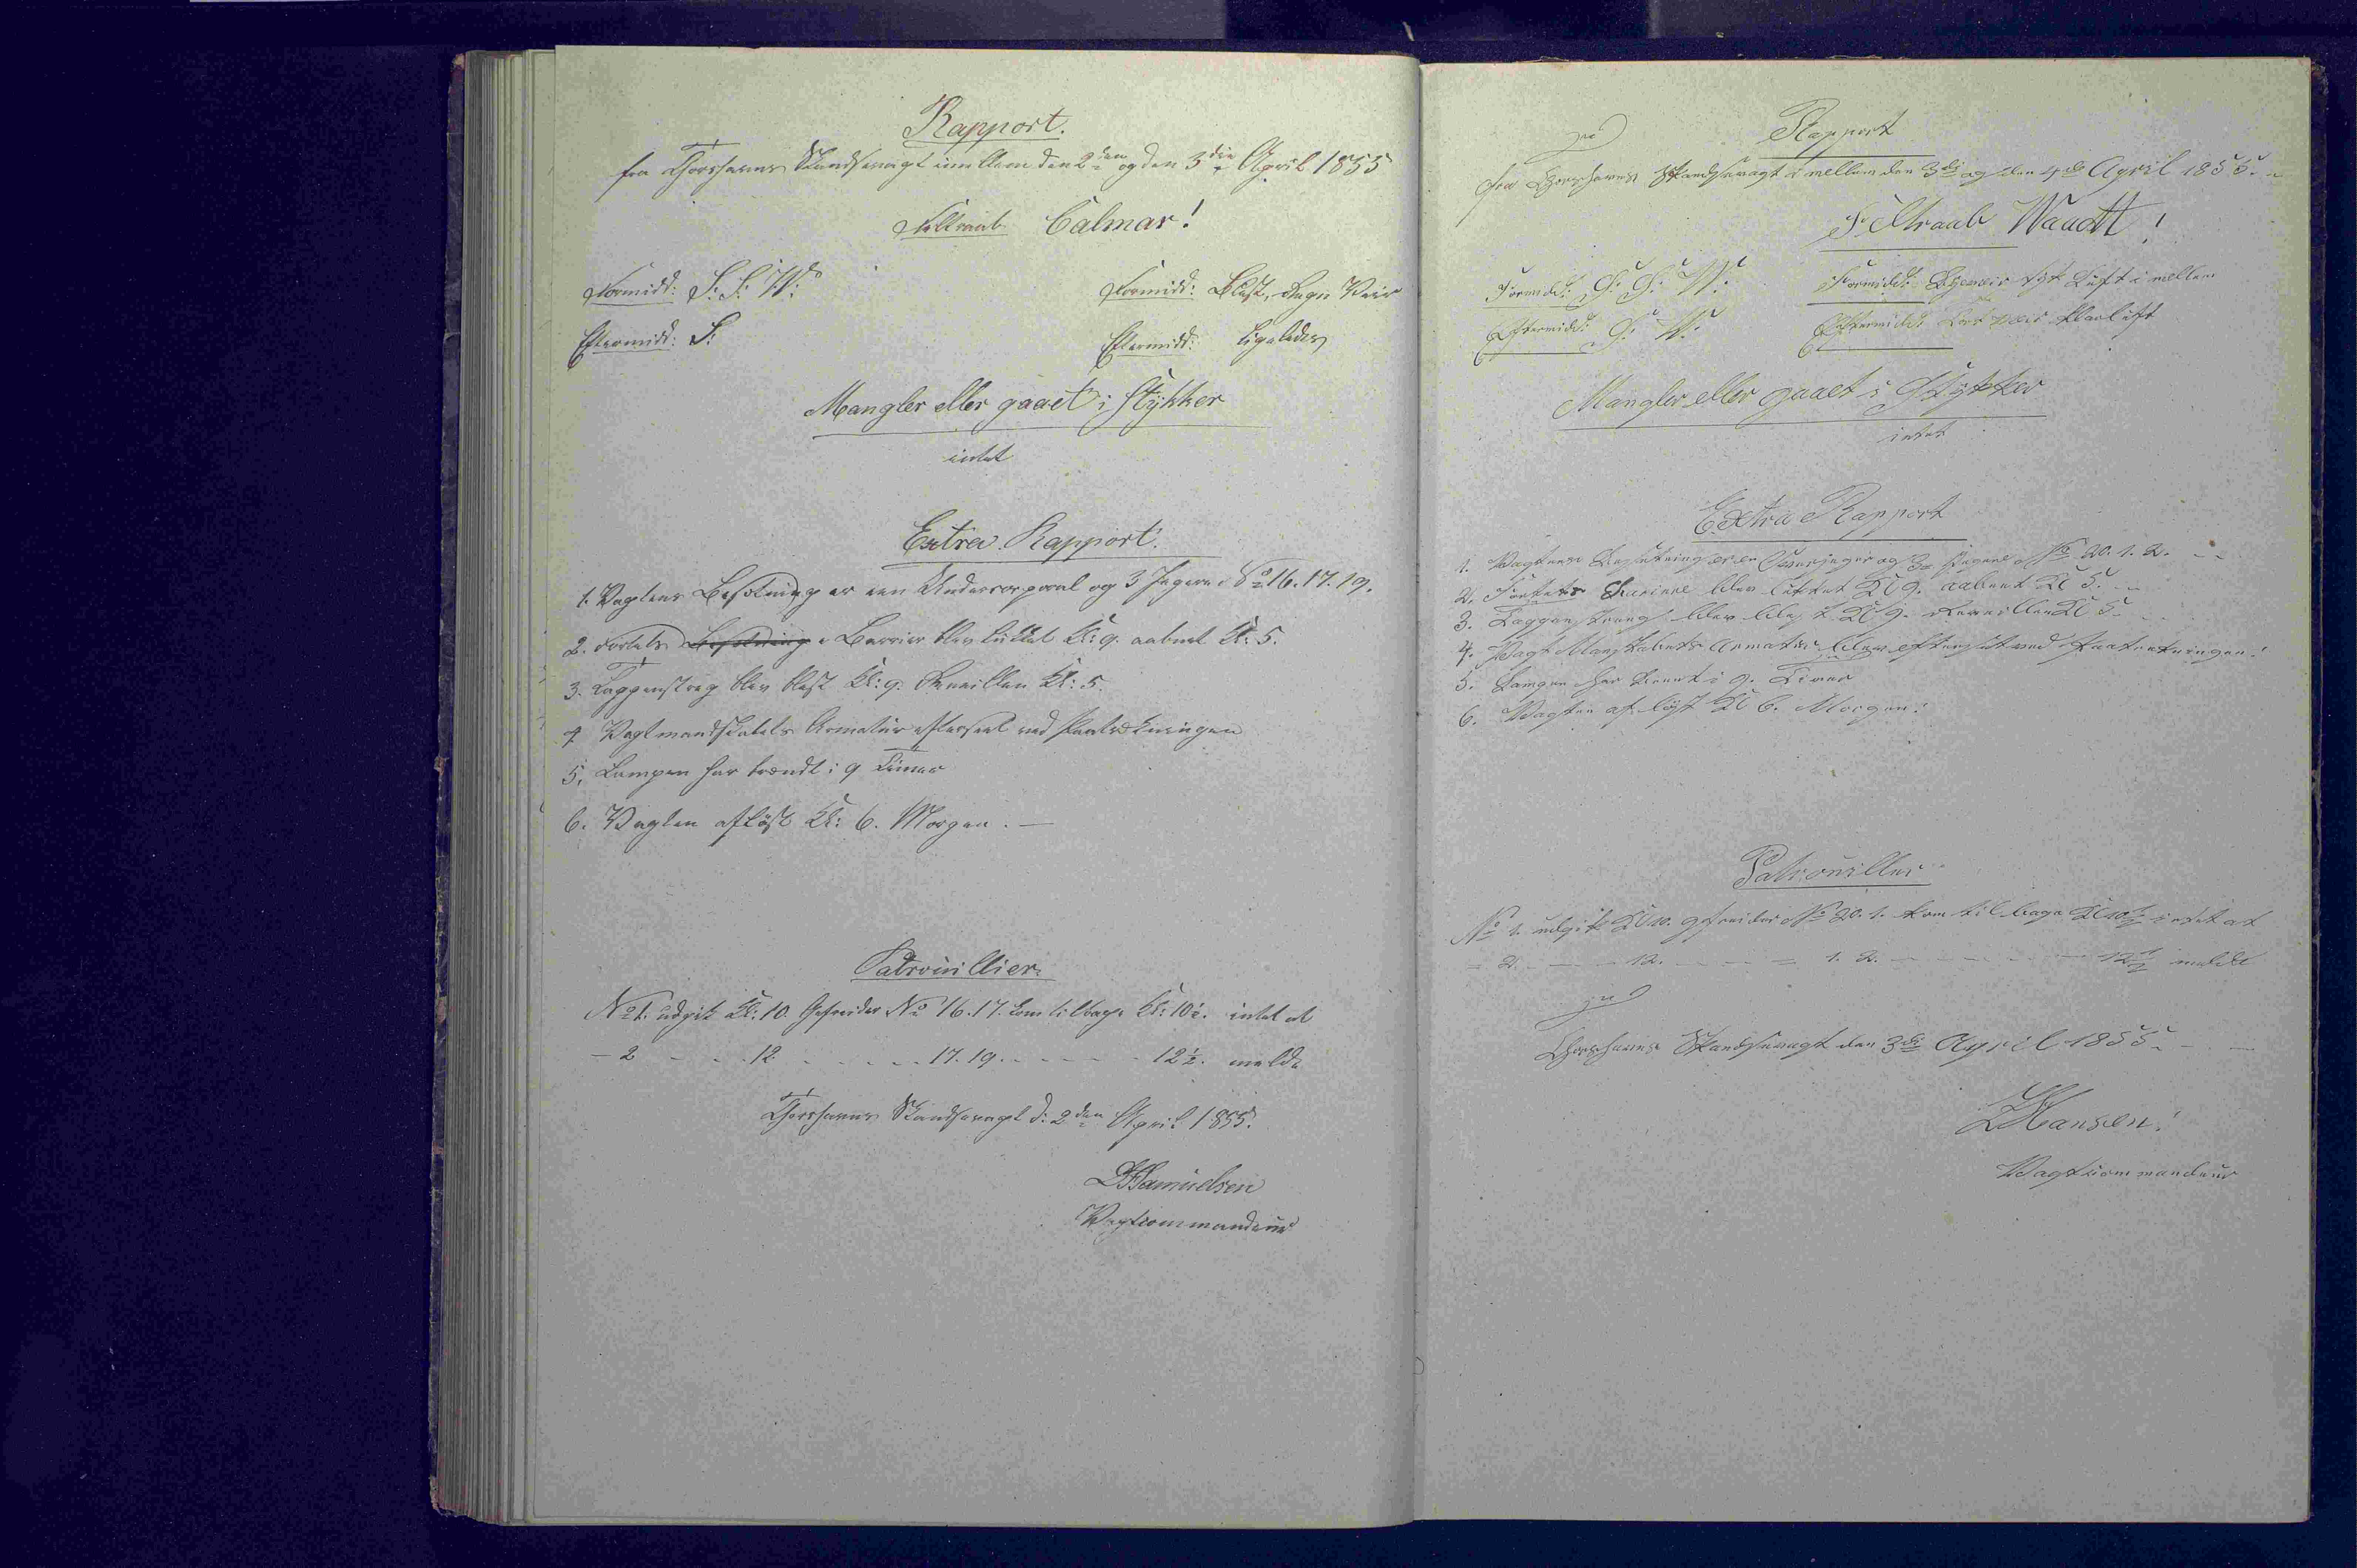 Rapport.
fra Thorshavns Skandsevagt imellem den 2den og den 3die April 1855
Feltraab Calmar!
Formidd: S: S: W:
Formidd: Blæst, Regn Veir
Eftermidd: S:
Eftermidd: ligeledes
Mangler eller gaaet i Stykker
intet
Extra Rapport.
1. Vagtens Besætning er een Undercorporal og 3 Jægere No 16. 17. 19.
2. Fortets Besætning Barrier blev lukket Kl: 9. aabnet Kl: 5.
3. Tappenstreg blev blæst Kl: 9. Reveillen Kl: 5.
4 Vagtmandskabets Armatur efterseet ved Paatrædningen
5. Lampen har brændt i 9 Timer
6. Vagten afløst Kl: 6. Morgen. —
Patrouillier
No 1. udgik Kl: 10. Gefreider No 16. 17. kom tilbage Kl: 10½. intet at
- 2 - - . 12 . . - . . 17. 19. - - - - 12½. melde
Thorshavns Skandsevagt d: 2den April 1855.
Samuelsen
Vagtcommandeur
Rapport
fra Thorshavns Skandsevagt imellem den 3die og den 4de April 1855.
Feltraab
Formidd: S: S: W:
Formidd: tyk Luft i mellem
Eftermidd: S: W:
Eftermidd: klar luft
Mangler eller gaaet i Stykker
intet
Extra Rapport
1. Vagtens Besætning er en og 3 Jægere No 20. 1. 2.
2. Fortets Bariere blev lukket Kl 9. aabnet Kl 5.
3. Tappenstreg blev blæst Kl 9. Reveillen Kl 5.
4. Vagt Manskabets Armatur blev efterset ved Paatrædningen.
5. Lampen har brænt i 9. Timer
6. Vagten afløst Kl 6. Morgen.
Patrouiller
No 1. udgik Kl 10. gefreider No 20. 1. kom tilbage Kl 10½ intet at
= 2. — - 12. - - - = 1. 2. - - - - - 12½ melde
Thorshavns Skandsevagt den 3die April 1855. - —
Hansen.
Vagtcommandeur